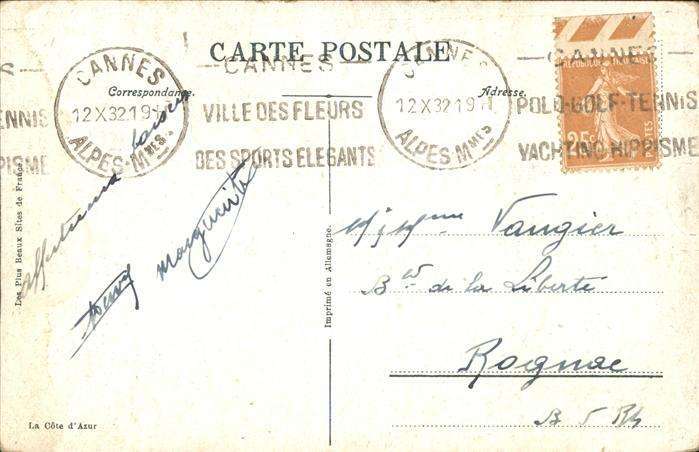 CARTE POSTALE
Correspondance.
Adresse.
CANNES
12 X 32 19 H
ALPES-Mmes
CANNES
VILLE DES FLEURS
DES SPORTS ELEGANTS
CANNES
12 X 32 19 H
ALPES-Mmes
CANNES
POLO-GOLF-TENNIS
YACHTING HIPPISME
TENNIS
PISME
REPUBLIQUE FRANÇAISE
25c
affectueux baisers
Marguerite
Vangier
Bd de la Liberté
Rognac
B d Rh
Les Plus Beaux Sites de France
Imprimé en Allemagne.
La Côte d'Azur